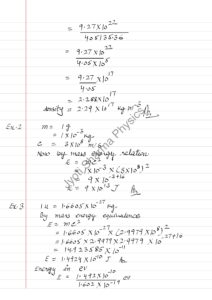 = 9.27 × 10²²
405135.36
= 9.27 × 10²²
4.05 × 10⁵
= 9.27 × 10¹⁷
4.05
= 2.288 × 10¹⁷
density = 2.29 × 10¹⁷ kg m⁻³ Ans
Ex-2 m = 1 g
= 1 × 10⁻³ kg
C = 3 × 10⁸ m/s
Now by mass energy relation
E = mc²
= 1 × 10⁻³ × (3 × 10⁸)²
= 9 × 10⁻³⁺¹⁶
E = 9 × 10¹³ J Ans
Ex-3 1 u = 1.6605 × 10⁻²⁷ kg
By mass energy equivalence
E = mc²
= 1.6605 × 10⁻²⁷ × (2.9979 × 10⁸)²
= 1.6605 × 2.9979 × 2.9979 × 10⁻²⁷⁺¹⁶
= 14.923585 × 10⁻¹¹
E = 1.4924 × 10⁻¹⁰ J Ans
Energy in eV
E = 1.492 × 10⁻¹⁰ eV
1.602 × 10⁻¹⁹
Physics